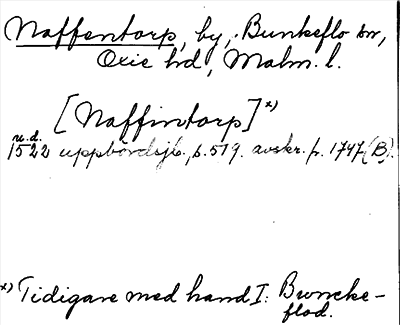 Naffentorp, by, Bunkeflo sn,
Oxie hd, Malm. l.
[Naffintorp] x)
u.d.
1522 uppbördsjb. p. 519. avskr. fr. 1747 (B).
x) Tidigare med hand I: Bwncke-
flod.